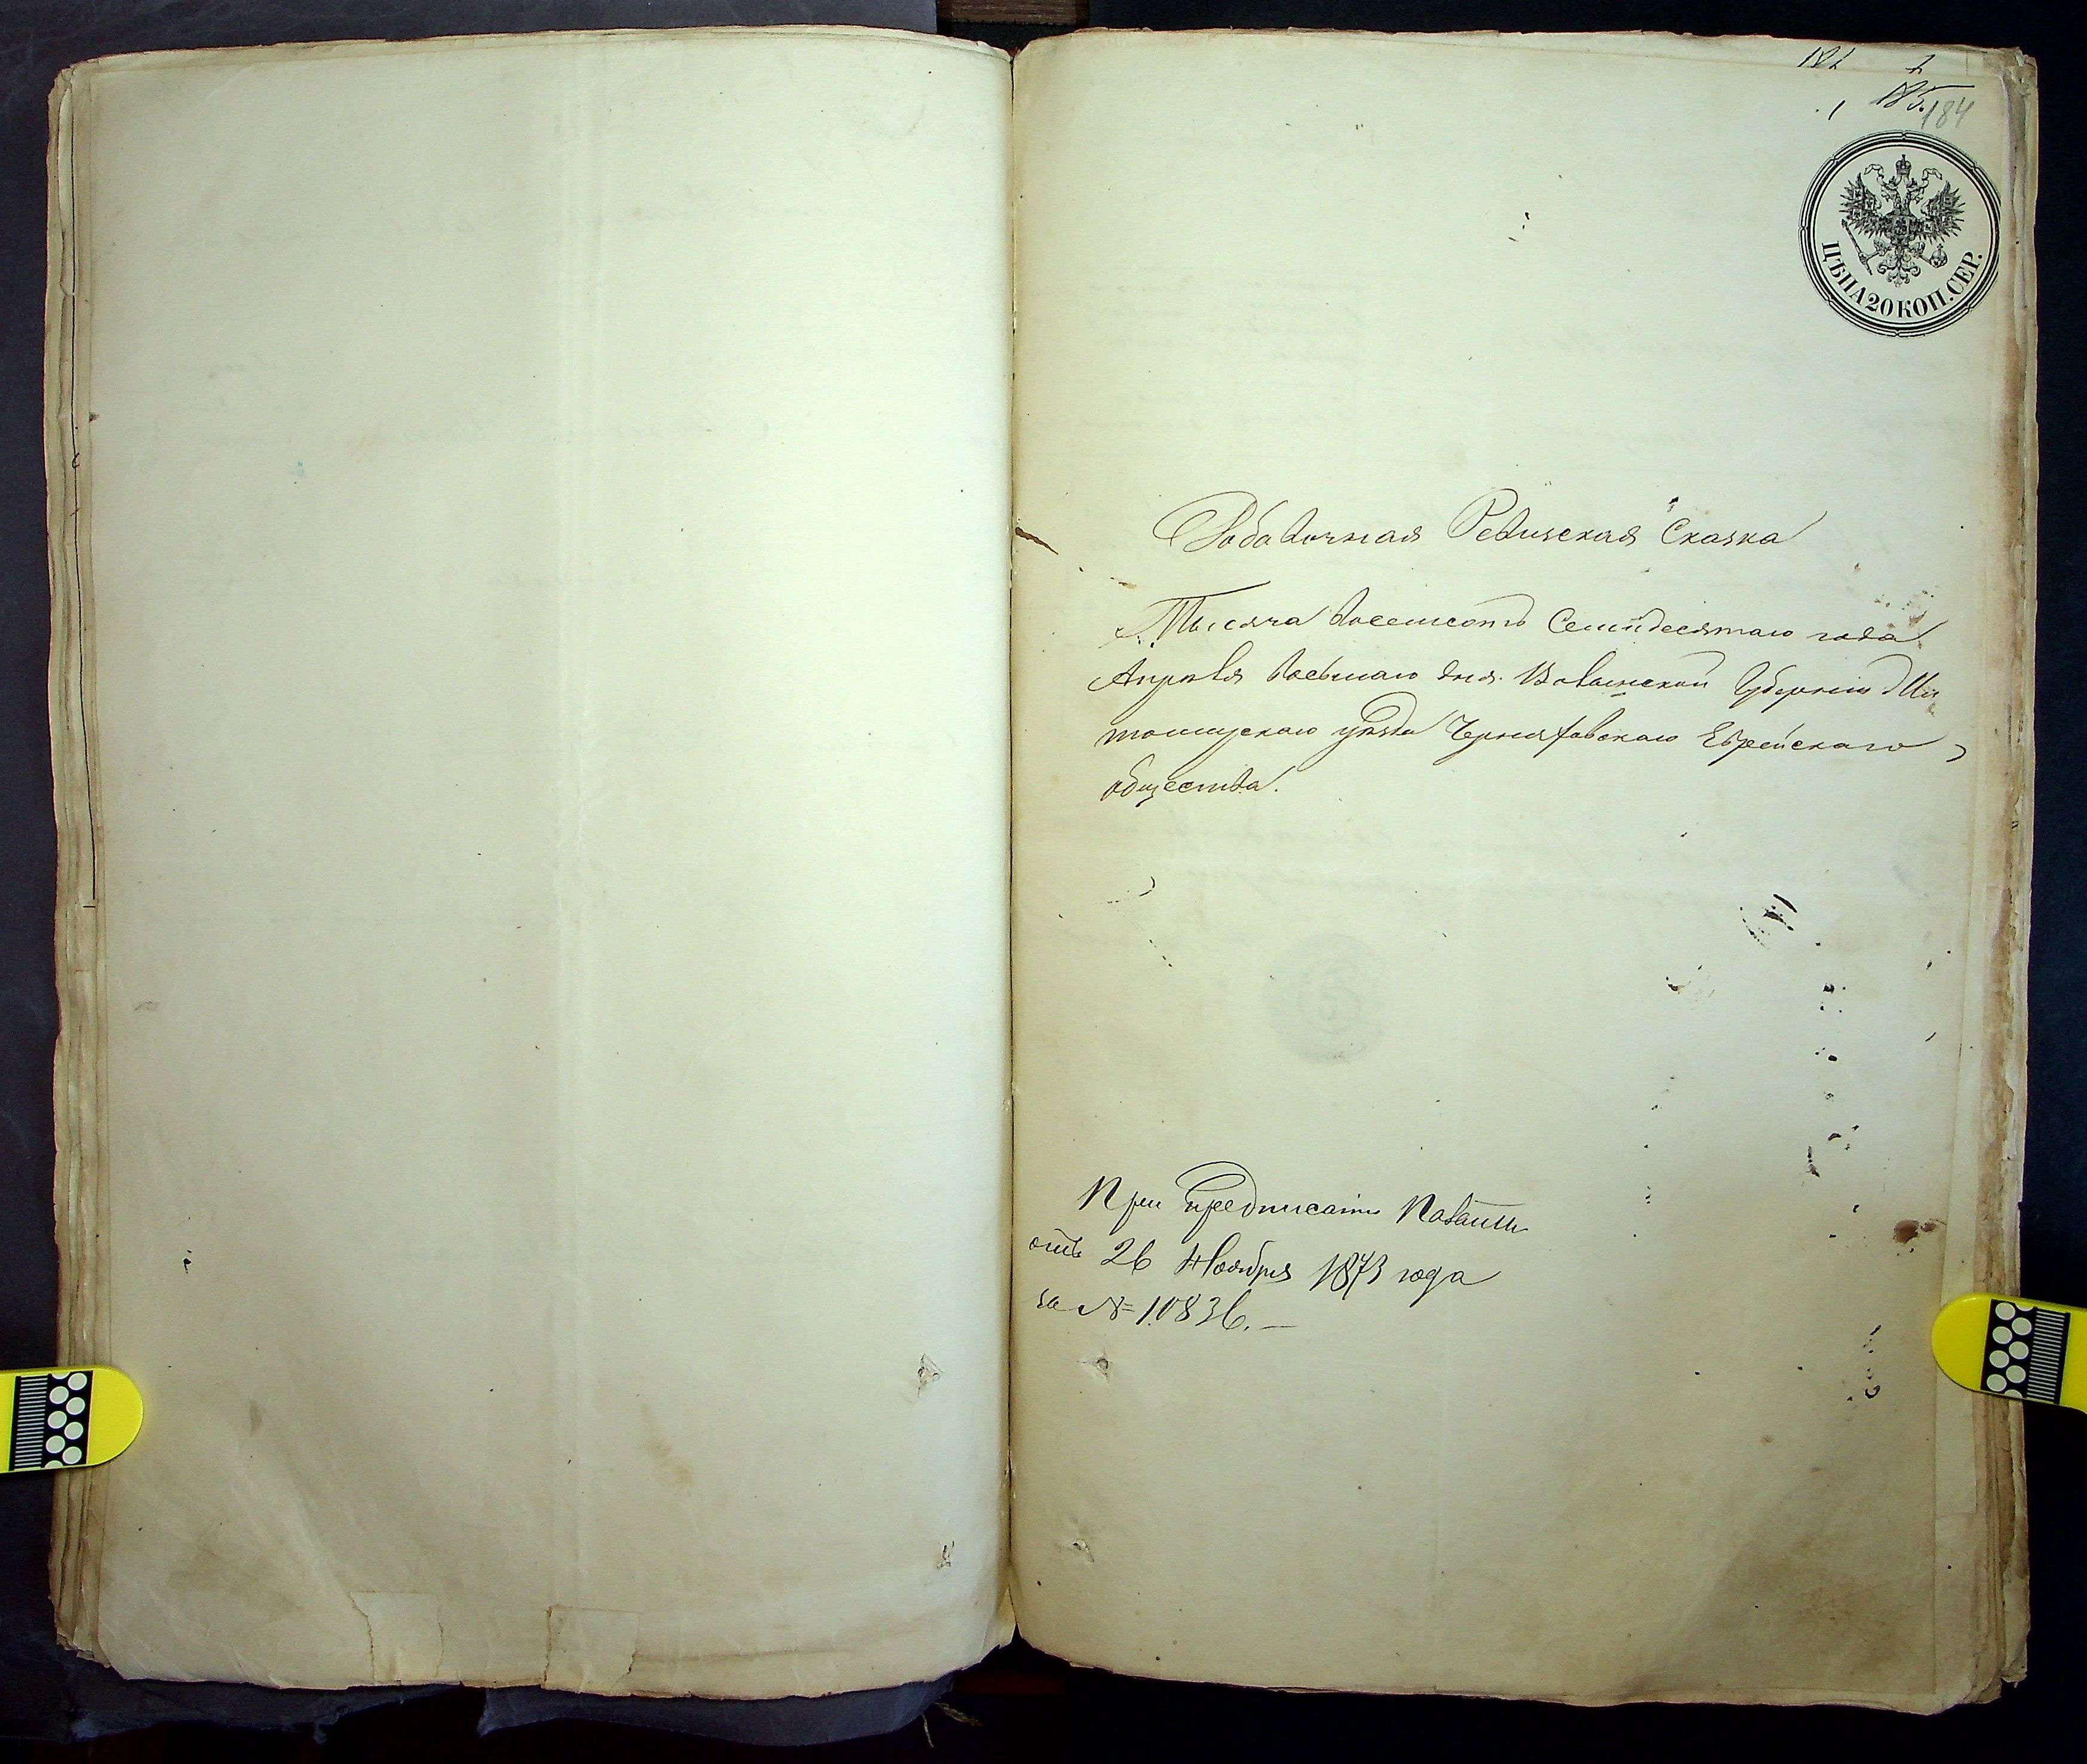 184
ЦѢНА 20 КОП. СЕР.
Добавочная Ревизская Сказка
Тысяча восемсотъ Семидесятаго года
Апрѣля восьмаго дня Волынской Губерніи Жи
томирскаго уѣзда Черняховскаго Еврейскаго
общества.
При предписаніи Палаты
отъ 26 Ноября 1873 года
за № 10836. —